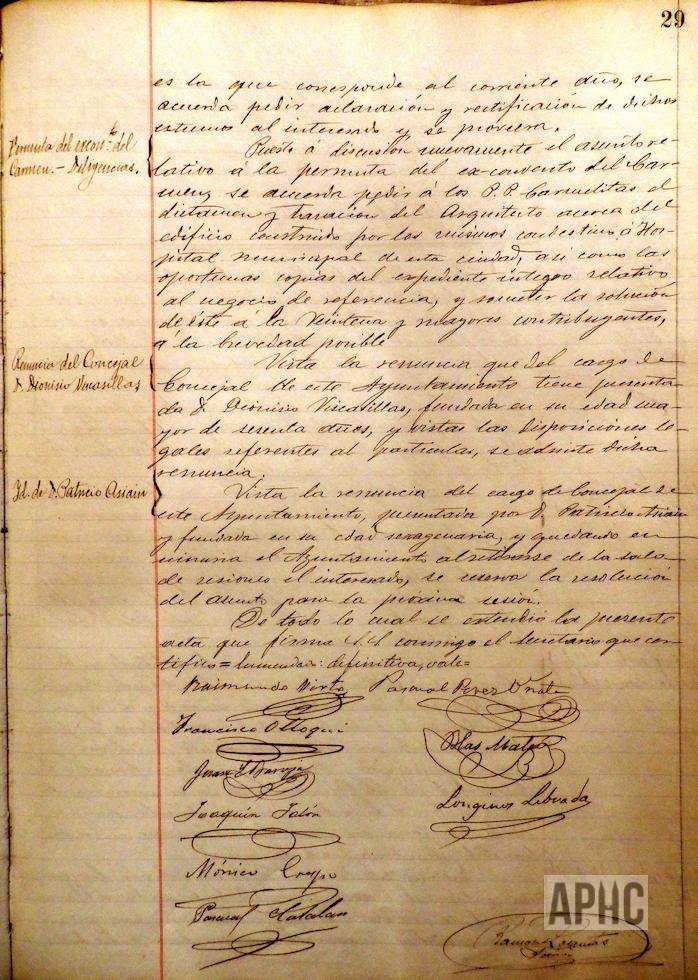 29
es la que corresponde al corriente año, se
acuerda pedir aclaración y rectificación de dichos
extremos al interesado y se proveera.
Permuta del excont.to del
Carmen.- Diligencias.
Puesto á discusion nuevamente el asunto re-
lativo á la permuta del ex-convento del Car-
men, se acuerda pedir á los P.P. Carmelitas el
dictamen y tasacion del Arquitecto acerca del
edificio construido por los mismos con destino á Hos-
pital municipal de esta ciudad, así como las
oportunas copias del expediente íntegro relativo
al negocio de referencia, y someter la solución
de éste á la Veintena y mayores contribuyentes,
á la brevedad posible
Renuncia del Concejal
D. Dionisio Viscasillas
Vista la renuncia que del cargo de
Concejal de este Ayuntamiento tiene presenta-
da D. Dionisio Viscasillas, fundada en su edad ma-
yor de sesenta años, y vistas las disposiciones le-
gales referentes al particular, se admite dicha
renuncia.
Id. de D. Patricio Asiain
Vista la renuncia del cargo de Concejal de
este Ayuntamiento, presentada por D. Patricio Asiain
y fundada en su edad sexagenaria, y quedando en
minoria el Ayuntamiento al retirarse de la sala
de sesiones el interesado, se reserva la resolución
del asunto para la próxima sesión.
De todo lo cual se estendió la presente
acta que firma S.S. conmigo el secretario que cer-
tifico = Enmendado: definitiva, vale=
Raimundo Virto Pascual Perez Oñate
Francisco Olloqui
Blas Mateo
Juan
Joaquín Longinos Labrada
Mónico Crespo
Pascual Catalan
Ramon
APHC